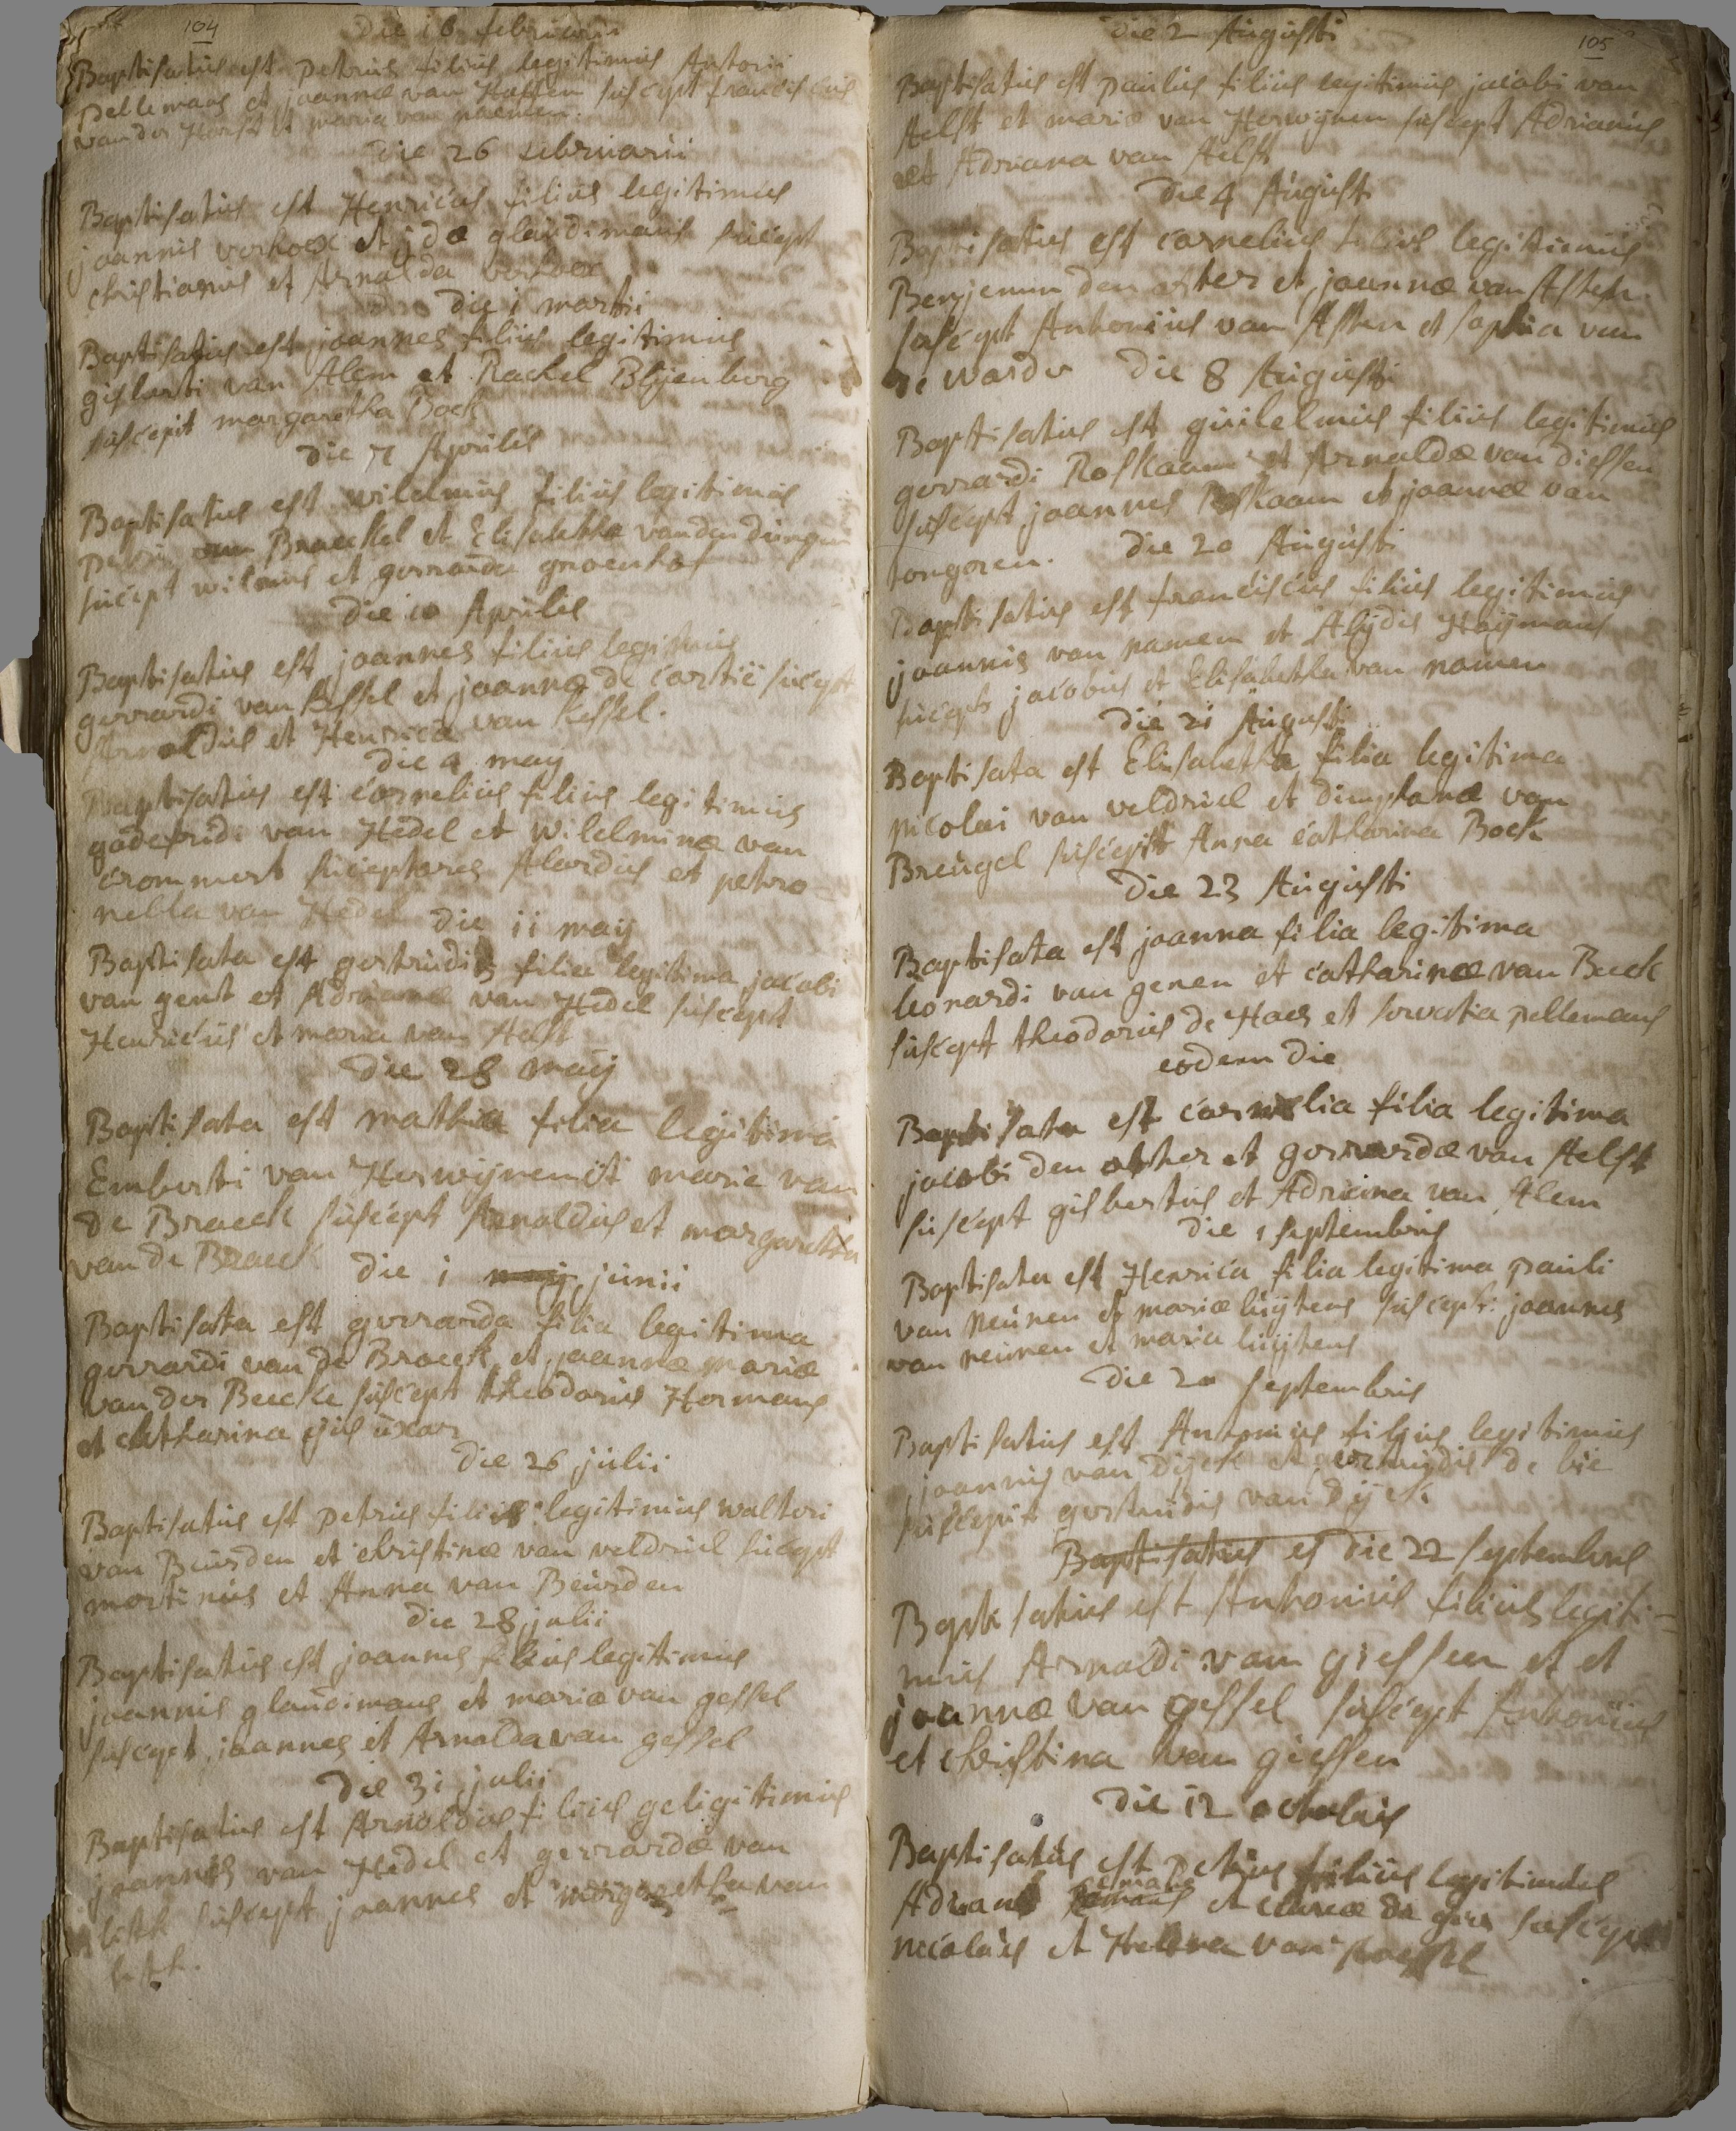 104
die 16 februarii
Baptisatus est petrus filius legitimus Antonii
pellemans et joannæ van Haffen suscept franciscus
van der Horst et maria van namen.
die 26 februarii
Baptisatus est Henricus filius legitimus
joannis verhoex et jdæ glaudimans sucept
christianus et Arnolda verhoex
die i martii
Baptisatus est joannes filius legitimus
gisberti van Alem et Rachel Blijenberg
suscepit margaretha Bock
die 7 Aprilis
Baptisatus est wilelmus filius legitimus
petri van Braeckel et Elisabethæ vanden dungen
sucept wilmus et gerrarda groenhof
die 10 Aprilis
Baptisatus est joannes filius legitimus
gerrardi van kessel et joannæ de cartië sucept
Arnoldus et Henrica van kessel.
die 4 maij
Baptisatus est cornelius filius legitimus
godefridi van Hedel et wilelminæ van
crommert suceptores Alardus et petro-
nella van Hedel
die ii maij
Baptisata est gertrudis filia legitima jacobi
van gent et Adrianæ van Hedel suscept
Henricus et maria van Aelst
die 28 maij
Baptisata est mathia filia legitima
Emberti van Herwijnen et mariæ van
de Braeck suscept Arnoldus et margareta
van de Braeck
die i maij junii
Baptisata est gerrarda filia legitima
gerrardi van de Braeck et joannæ mariæ
van der Beecke suscept theodorus Hermans
et chatharina ejus uxor
die 26 julii
Baptisatus est petrus filius legitimus walteri
van Beurden et christinæ van veldriel sucept
martinus et Anna van Beurden
die 28 julii
Baptisatus est joannes filius legitimus
joannis glaudimans et mariæ van gessel
suscept joannes et Arnolda van gessel
die 3i julii
Baptisatus est Arnoldus filius geligitimus
joannes van Hedel et gerrardæ van
lith suscept joannes et margaretha van
lith.
105
die 2 Augusti
Baptisatus est paulus filius legitimus jacobi van
Aelst et mariæ van Herwijnen suscept Adrianus
et Adriana van Aelst
die 4 Augusti
Baptisatus est cornelius filius legitimus
Benjemin den other et joannæ van Asten.
suscept Antonius van Asten et sophia van
de warder
die 8 Augusti
Baptisatus est guilelmus filius legitimus
gerrardi Roskaam et Arnoldæ van diessen
suscept joannes Roskaam et joannæ van
tongoren.
die 20 Augusti
Baptisatus est franciscus filius legitimus
joannis van namen et Alijdis Haijmans
sucept jacobus et Elisabetha van namen
die 2i Augusti
Baptisata est Elisabetha filia legitima
nicolai van veldriel et dimphanæ van
Breugel suscepit Anna catharina Bock
die 23 Augusti
Baptisata est joanna filia legitima
leonardi van genen et catharinæ van Beek
suscept theodorus de Haes et servatia pellemans
eodem die
Baptisata est cornelia filia legitima
jacobi den other et gerrardæ van Aelst
suscept gisbertus et Adriana van Alem
die 1 septembris
Baptisata est Henrica filia legitima pauli
van neunen et mariæ luijtens suscept: joannes
van neunen et maria luijtens
die 20 septembris
Baptisatus est Antonius filius legitimus
joannis van Dijck et geertruijdis de bie
suscepit gertrudis van Dijck
Baptisatus es die 22 septembris
Baptisatus est Antonius filius legiti-
mus Arnoldi van giessen et et
joannæ van gessel suscept Antonius
et christina van giessen
die i2 octobris
Baptisatus est petrus filius legitimus
Adriani et claræ de suscept
nicolaus et Helena van